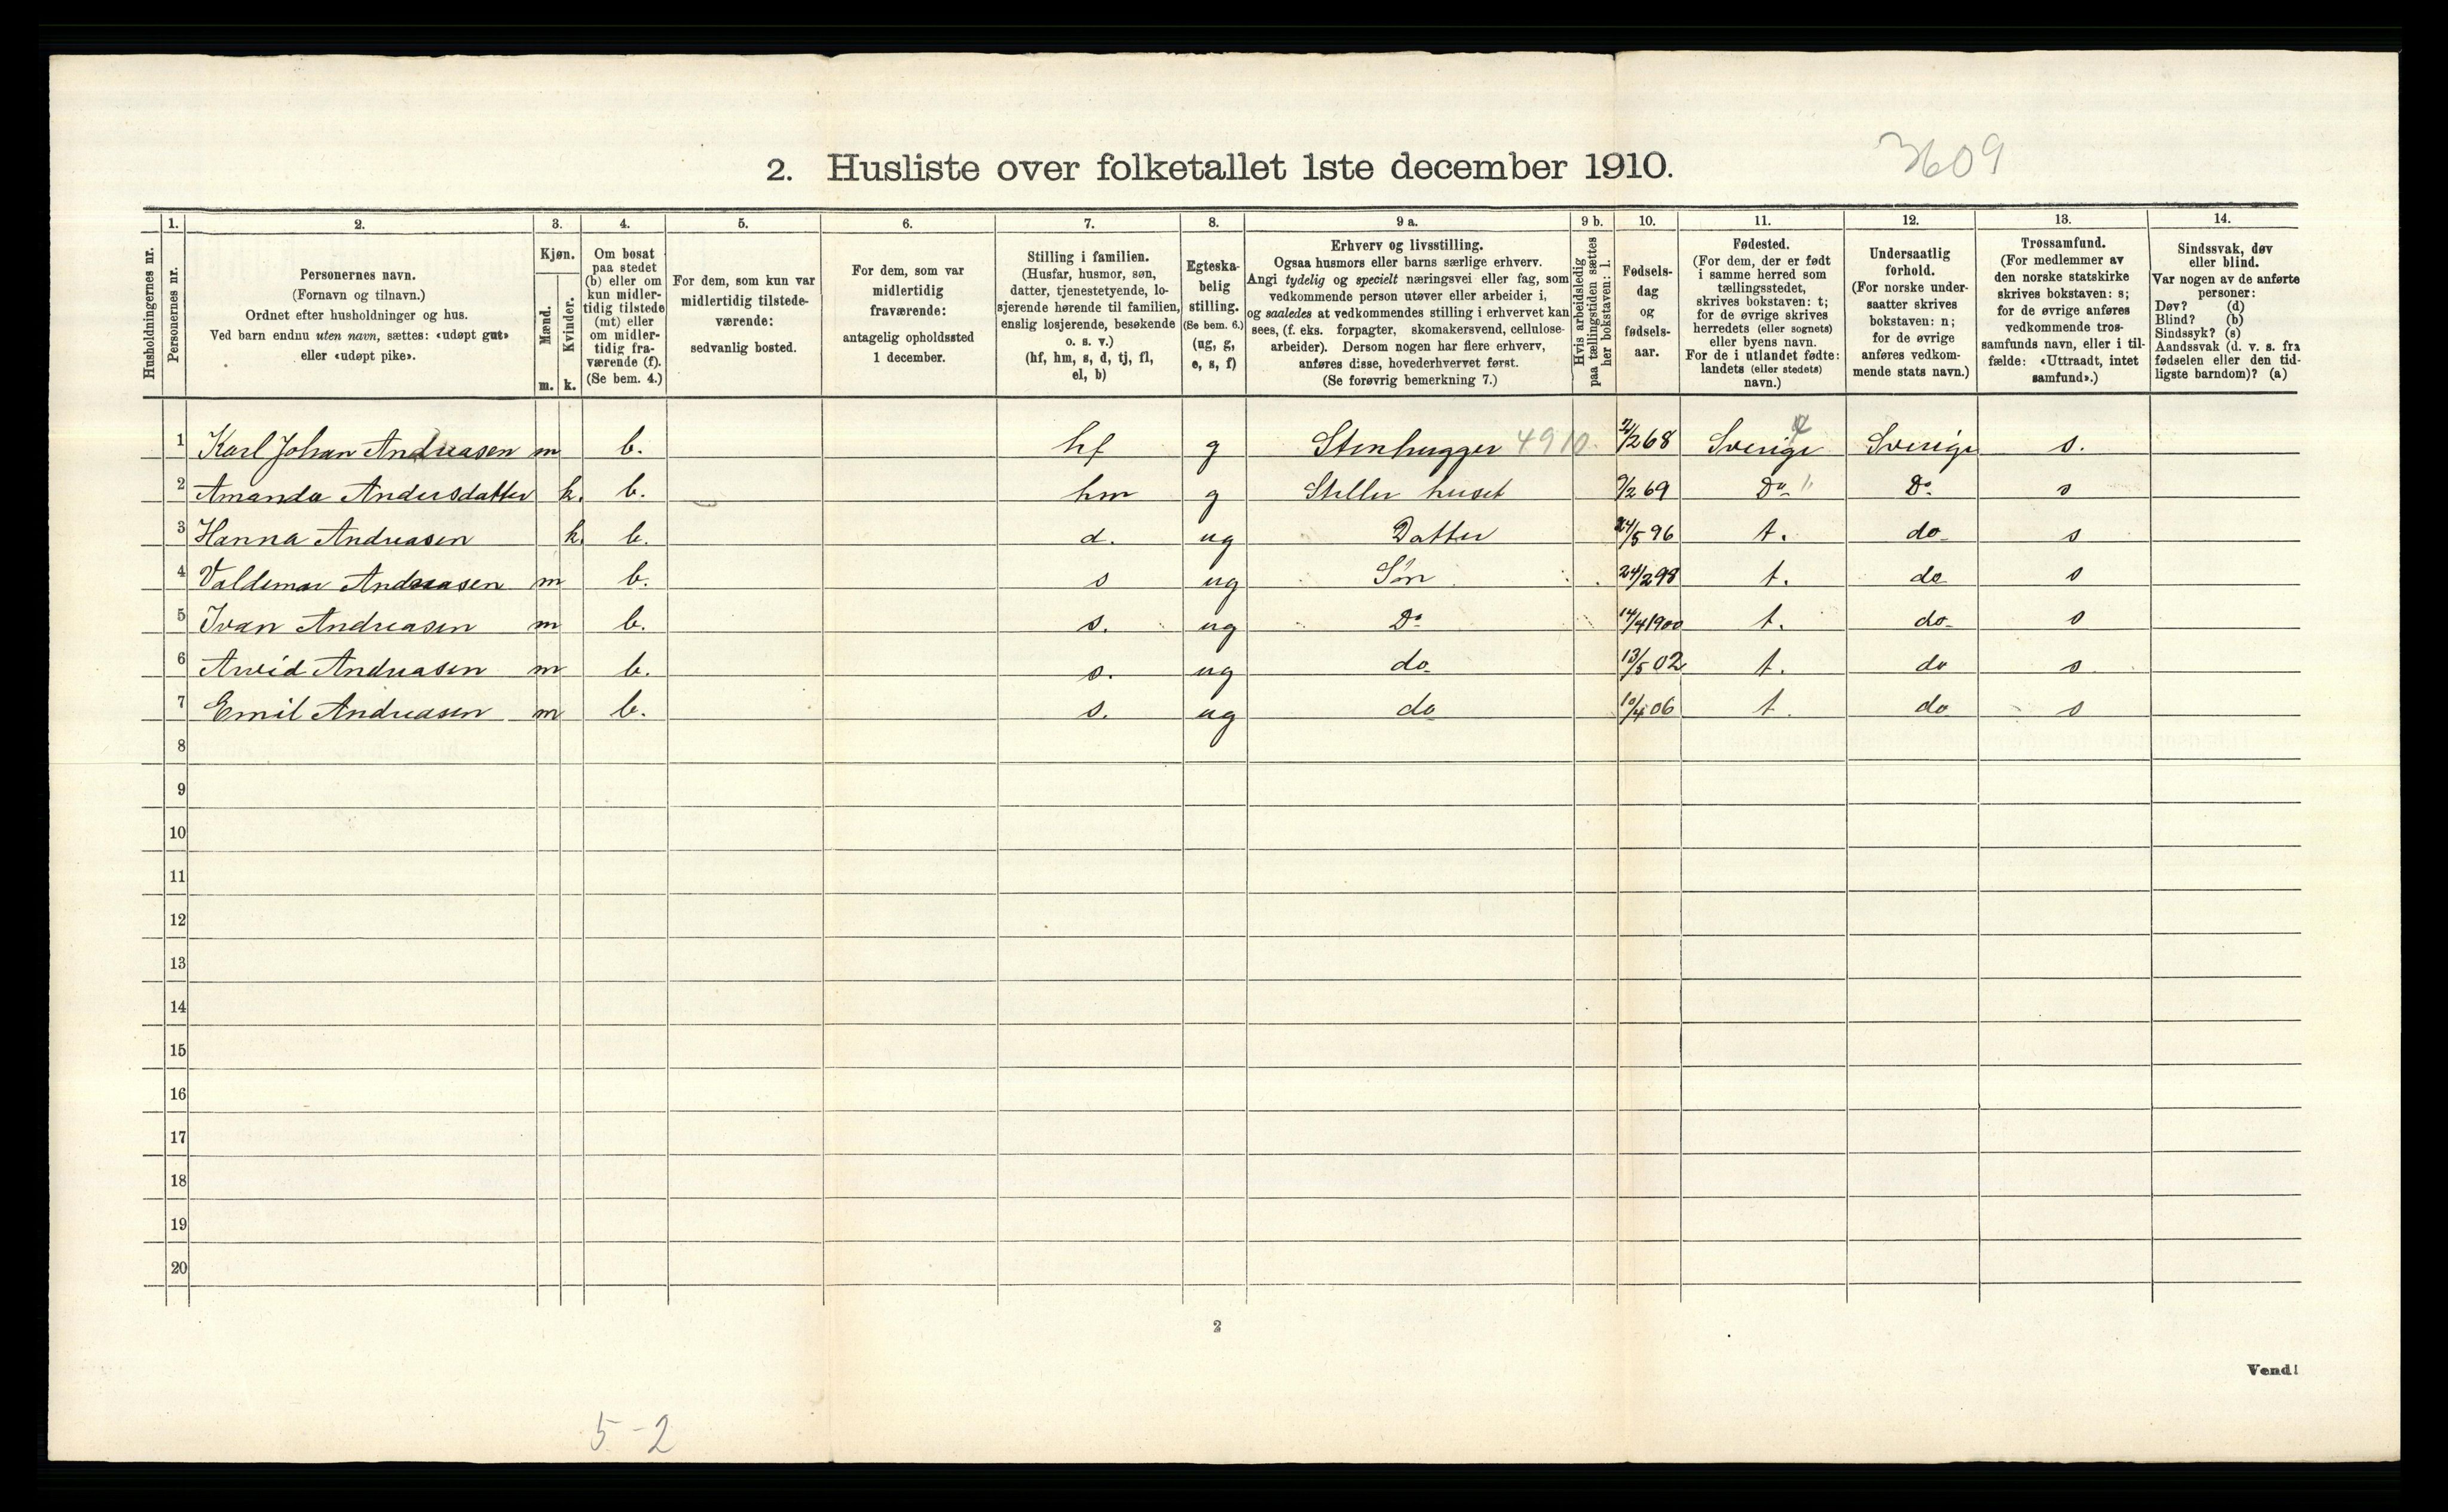 3609
2. Husliste over folketallet 1ste december 1910.
1. 2. 3. 4. 5. 6. 7. 8. 9 a. 9 b. 10. 11. 12. 13. 14.
Husholdningernes nr.
Personernes nr.
Personernes navn.
(Fornavn og tilnavn.)
Ordnet efter husholdninger og hus.
Ved barn endnu uten navn, sættes: «udøpt gut»
eller «udøpt pike».
Kjøn.
Mænd.
m.
Kvinder.
k.
Om bosat
paa stedet
(b) eller om
kun midler-
tidig tilstede
(mt) eller
om midler-
tidig fra-
værende (f).
(Se bem. 4.)
For dem, som kun var
midlertidig tilstede-
værende:
sedvanlig bosted.
For dem, som var
midlertidig
fraværende:
antagelig opholdssted
1 december.
Stilling i familien.
(Husfar, husmor, søn,
datter, tjenestetyende, lo-
sjerende hørende til familien,
enslig losjerende, besøkende
o. s. v.)
(hf, hm, s, d, tj, fl,
el, b)
Egteska-
belig
stilling.
(Se bem. 6.)
(ug, g,
e, s, f)
Erhverv og livsstilling.
Ogsaa husmors eller barns særlige erhverv.
Angi tydelig og specielt næringsvei eller fag, som
vedkommende person utøver eller arbeider i,
og saaledes at vedkommendes stilling i erhvervet kan
sees, (f. eks. forpagter, skomakersvend, cellulose-
arbeider). Dersom nogen har flere erhverv,
anføres disse, hovederhvervet først.
(Se forøvrig bemerkning 7.)
Hvis arbeidsledig
paa tællingstiden sættes
her bokstaven: l.
Fødsels-
dag
og
fødsels-
aar.
Fødested.
(For dem, der er født
i samme herred som
tællingsstedet,
skrives bokstaven: t;
for de øvrige skrives
herredets (eller sognets)
eller byens navn.
For de i utlandet fødte:
landets (eller stedets)
navn.)
Undersaatlig
forhold.
(For norske under-
saatter skrives
bokstaven: n;
for de øvrige
anføres vedkom-
mende stats navn.)
Trossamfund.
(For medlemmer av
den norske statskirke
skrives bokstaven: s;
for de øvrige anføres
vedkommende tros-
samfunds navn, eller i til-
fælde: «Uttraadt, intet
samfund».)
Sindssvak, døv
eller blind.
Var nogen av de anførte
personer:
Døv? (d)
Blind? (b)
Sindssyk? (s)
Aandssvak (d. v. s. fra
fødselen eller den tid-
ligste barndom)? (a)
1 Karl Johan Andreasen m b. hf g Stenhugger 4910 2/68 Sverige Sverige s.
2 Amanda Andersdatter k. b. hm g Steller huset 9/2 69 Do " Do s
3 Hanna Andreasen k. b. d. ug Datter 24/5 96 t. do s
4 Valdemar Andreasen m b. s ug Søn 24/2 98 t. do s
5 Ivan Andreasen m b. s. ug Do 14/4 1900 t. do s
6 Arvid Andreasen m b. s. ug do 13/5 02 t. do s
7 Emil Andreasen m b. s. ug do 10/4 06 t. do s
8
9
10
11
12
13
14
15
16
17
18
19
20
2
Vend!
5-2